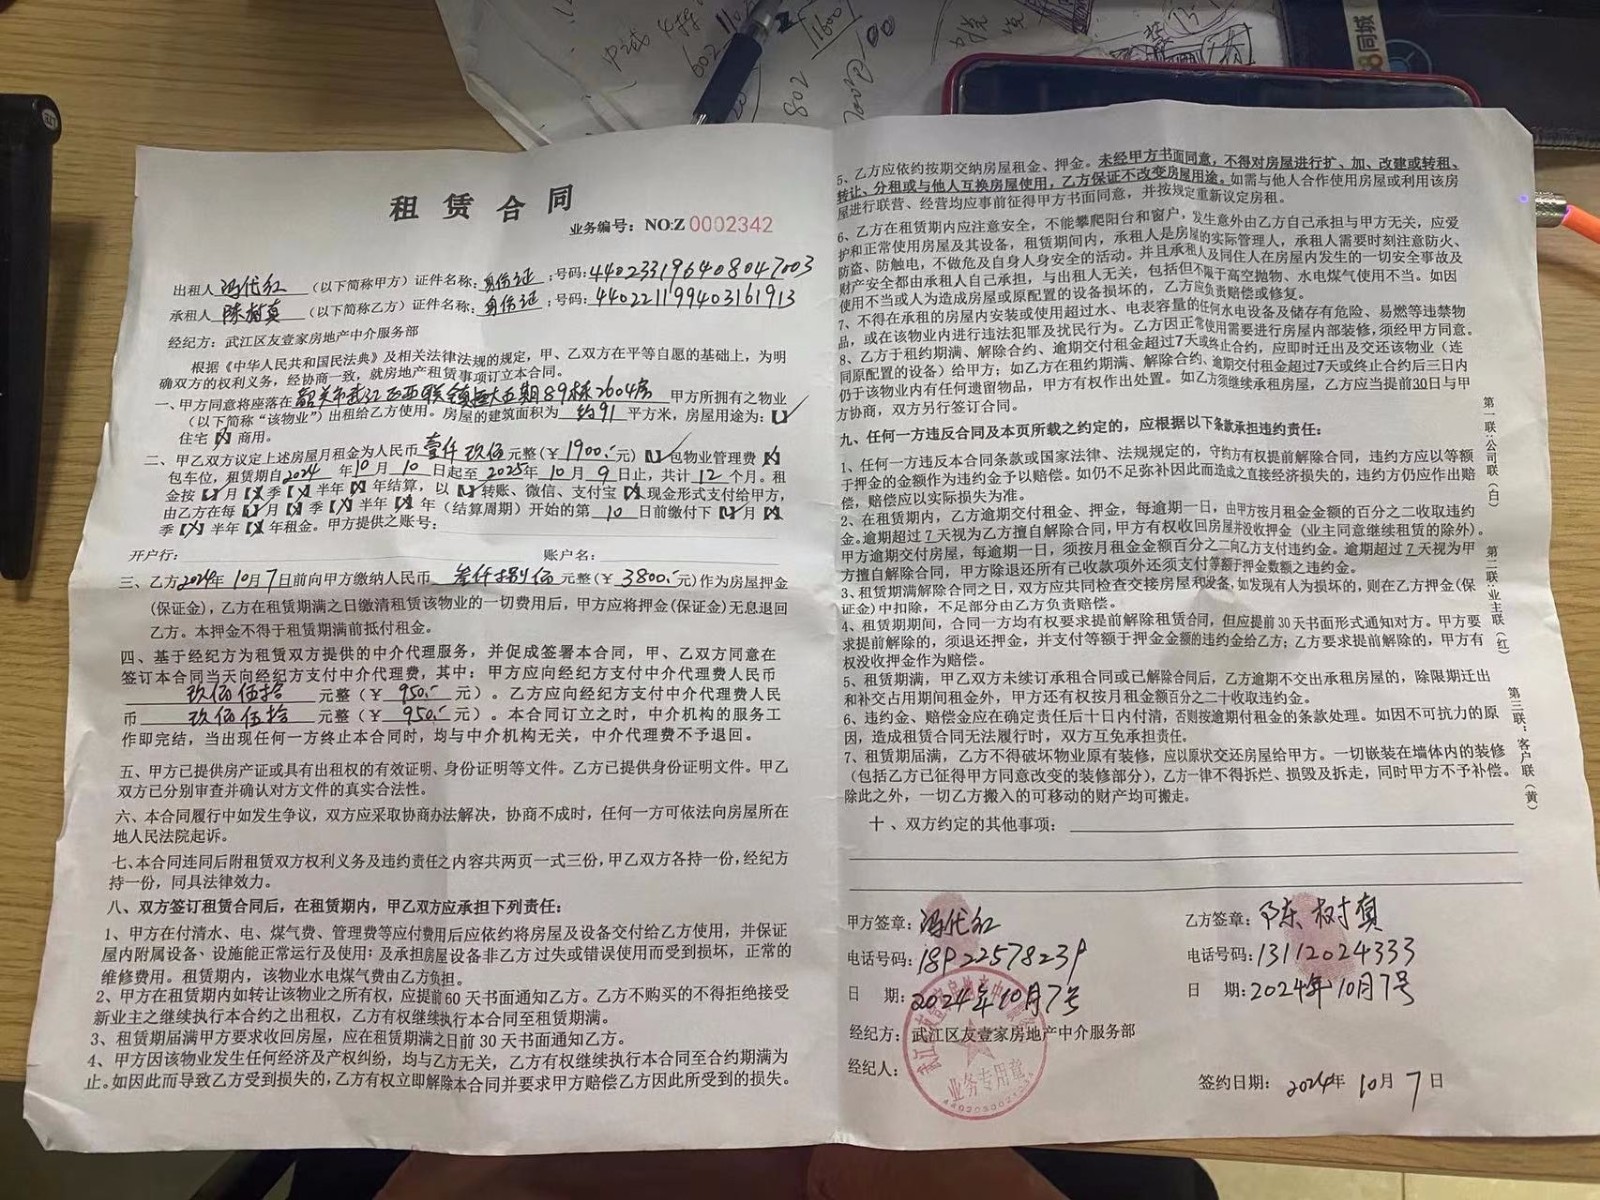 租赁合同
业务编号：NO:Z 0002342
出租人 冯代红 （以下简称甲方）证件名称：身份证；号码：440233196408047003
承租人 陈树真 （以下简称乙方）证件名称：身份证；号码：440221199403161913
经纪方：武江区友壹家房地产中介服务部
根据《中华人民共和国民法典》及相关法律法规的规定，甲、乙双方在平等自愿的基础上，为明
确双方的权利义务，经协商一致，就房地产租赁事项订立本合同。
一、甲方同意将座落在 韶关市武江区西联镇恒大五期89栋2604房 甲方所拥有之物业
（以下简称“该物业”）出租给乙方使用。房屋的建筑面积为 约91 平方米，房屋用途为：【✓】
住宅【×】商用。
二、甲乙双方议定上述房屋月租金为人民币 壹仟玖佰 元整（￥1900.-元）【✓】包物业管理费【×】
包车位，租赁期自2024年10月10日起至2025年10月9日止，共计12个月。租
金按【✓】月【×】季【×】半年【×】年结算，以【✓】转账、微信、支付宝【×】现金形式支付给甲方，
由乙方在每【✓】月【×】季【×】半年【×】年（结算周期）开始的第 10 日前缴付下【✓】月【×】
季【×】半年【×】年租金。甲方提供之账号：
开户行： 账户名：
三、乙方2024年10月7日前向甲方缴纳人民币 叁仟捌佰 元整（￥3800.-元）作为房屋押金
（保证金），乙方在租赁期满之日缴清租赁该物业的一切费用后，甲方应将押金（保证金）无息退回
乙方。本押金不得于租赁期满前抵付租金。
四、基于经纪方为租赁双方提供的中介代理服务，并促成签署本合同，甲、乙双方同意在
签订本合同当天向经纪方支付中介代理费，其中：甲方应向经纪方支付中介代理费人民币
玖佰伍拾 元整（￥950.-元）。乙方应向经纪方支付中介代理费人民
币 玖佰伍拾 元整（￥950.-元）。本合同订立之时，中介机构的服务工
作即完结，当出现任何一方终止本合同时，均与中介机构无关，中介代理费不予退回。
五、甲方已提供房产证或具有出租权的有效证明、身份证明等文件。乙方已提供身份证明文件。甲乙
双方已分别审查并确认对方文件的真实合法性。
六、本合同履行中如发生争议，双方应采取协商办法解决，协商不成时，任何一方可依法向房屋所在
地人民法院起诉。
七、本合同连同后附租赁双方权利义务及违约责任之内容共两页一式三份，甲乙双方各持一份，经纪方
持一份，同具法律效力。
八、双方签订租赁合同后，在租赁期内，甲乙双方应承担下列责任：
1、甲方在付清水、电、煤气费、管理费等应付费用后应依约将房屋及设备交付给乙方使用，并保证
屋内附属设备、设施能正常运行及使用；及承担房屋设备非乙方过失或错误使用而受到损坏，正常的
维修费用。租赁期内，该物业水电煤气费由乙方负担。
2、甲方在租赁期内如转让该物业之所有权，应提前60天书面通知乙方。乙方不购买的不得拒绝接受
新业主之继续执行本合约之出租权，乙方有权继续执行本合同至租赁期满。
3、租赁期届满甲方要求收回房屋，应在租赁期满之日前30天书面通知乙方。
4、甲方因该物业发生任何经济及产权纠纷，均与乙方无关，乙方有权继续执行本合同至合约期满为
止。如因此而导致乙方受到损失的，乙方有权立即解除本合同并要求甲方赔偿乙方因此所受到的损失。
5、乙方应依约按期交纳房屋租金、押金。未经甲方书面同意，不得对房屋进行扩、加、改建或转租、
转让、分租或与他人互换房屋使用，乙方保证不改变房屋用途。如需与他人合作使用房屋或利用该房
屋进行联营、经营均应事前征得甲方书面同意，并按规定重新议定房租。
6、乙方在租赁期内应注意安全，不能攀爬阳台和窗户，发生意外由乙方自己承担与甲方无关，应爱
护和正常使用房屋及其设备，租赁期间内，承租人是房屋的实际管理人，承租人需要时刻注意防火、
防盗、防触电，不做危及自身人身安全的活动。并且承租人及同住人在房屋内发生的一切安全事故及
财产安全都由承租人自己承担，与出租人无关，包括但不限于高空抛物、水电煤气使用不当。如因
使用不当或人为造成房屋或原配置的设备损坏的，乙方应负责赔偿或修复。
7、不得在承租的房屋内安装或使用超过水、电表容量的任何水电设备及储存有危险、易燃等违禁物
品，或在该物业内进行违法犯罪及扰民行为。乙方因正常使用需要进行房屋内部装修，须经甲方同意。
8、乙方于租约期满、解除合约、逾期交付租金超过7天或终止合约，应即时迁出及交还该物业（连
同原配置的设备）给甲方；如乙方在租约期满、解除合约、逾期交付租金超过7天或终止合约后三日内
仍于该物业内有任何遗留物品，甲方有权作出处置。如乙方须继续承租房屋，乙方应当提前30日与甲
方协商，双方另行签订合同。
九、任何一方违反合同及本页所载之约定的，应根据以下条款承担违约责任：
1、任何一方违反本合同条款或国家法律、法规规定的，守约方有权提前解除合同，违约方应以等额
于押金的金额作为违约金予以赔偿。如仍不足弥补因此而造成之直接经济损失的，违约方仍应作出赔
偿，赔偿应以实际损失为准。
2、在租赁期内，乙方逾期交付租金、押金，每逾期一日，由甲方按月租金金额的百分之二收取违约
金。逾期超过7天视为乙方擅自解除合同，甲方有权收回房屋并没收押金（业主同意继续租赁的除外）。
甲方逾期交付房屋，每逾期一日，须按月租金金额百分之二向乙方支付违约金。逾期超过7天视为甲
方擅自解除合同，甲方除退还所有已收款项外还须支付等额于押金数额之违约金。
3、租赁期满解除合同之日，双方应共同检查交接房屋和设备，如发现有人为损坏的，则在乙方押金（保
证金）中扣除，不足部分由乙方负责赔偿。
4、租赁期期间，合同一方均有权要求提前解除租赁合同，但应提前30天书面形式通知对方。甲方要
求提前解除的，须退还押金，并支付等额于押金金额的违约金给乙方；乙方要求提前解除的，甲方有
权没收押金作为赔偿。
5、租赁期满，甲乙双方未续订承租合同或已解除合同后，乙方逾期不交出承租房屋的，除限期迁出
和补交占用期间租金外，甲方还有权按月租金额百分之二十收取违约金。
6、违约金、赔偿金应在确定责任后十日内付清，否则按逾期付租金的条款处理。如因不可抗力的原
因，造成租赁合同无法履行时，双方互免承担责任。
7、租赁期届满，乙方不得破坏物业原有装修，应以原状交还房屋给甲方。一切嵌装在墙体内的装修
（包括乙方已征得甲方同意改变的装修部分），乙方一律不得拆烂、损毁及拆走，同时甲方不予补偿。
除此之外，一切乙方搬入的可移动的财产均可搬走。
十、双方约定的其他事项：
甲方签章：冯代红 乙方签章：陈树真
电话号码：18922578239 电话号码：13112024333
日 期：2024年10月7号 日 期：2024年10月7号
经纪方：武江区友壹家房地产中介服务部
经纪人：
业务专用章
签约日期：2024年10月7日
第一联：公司联（白）
第二联：业主联（红）
第三联：客户联（黄）
58同城